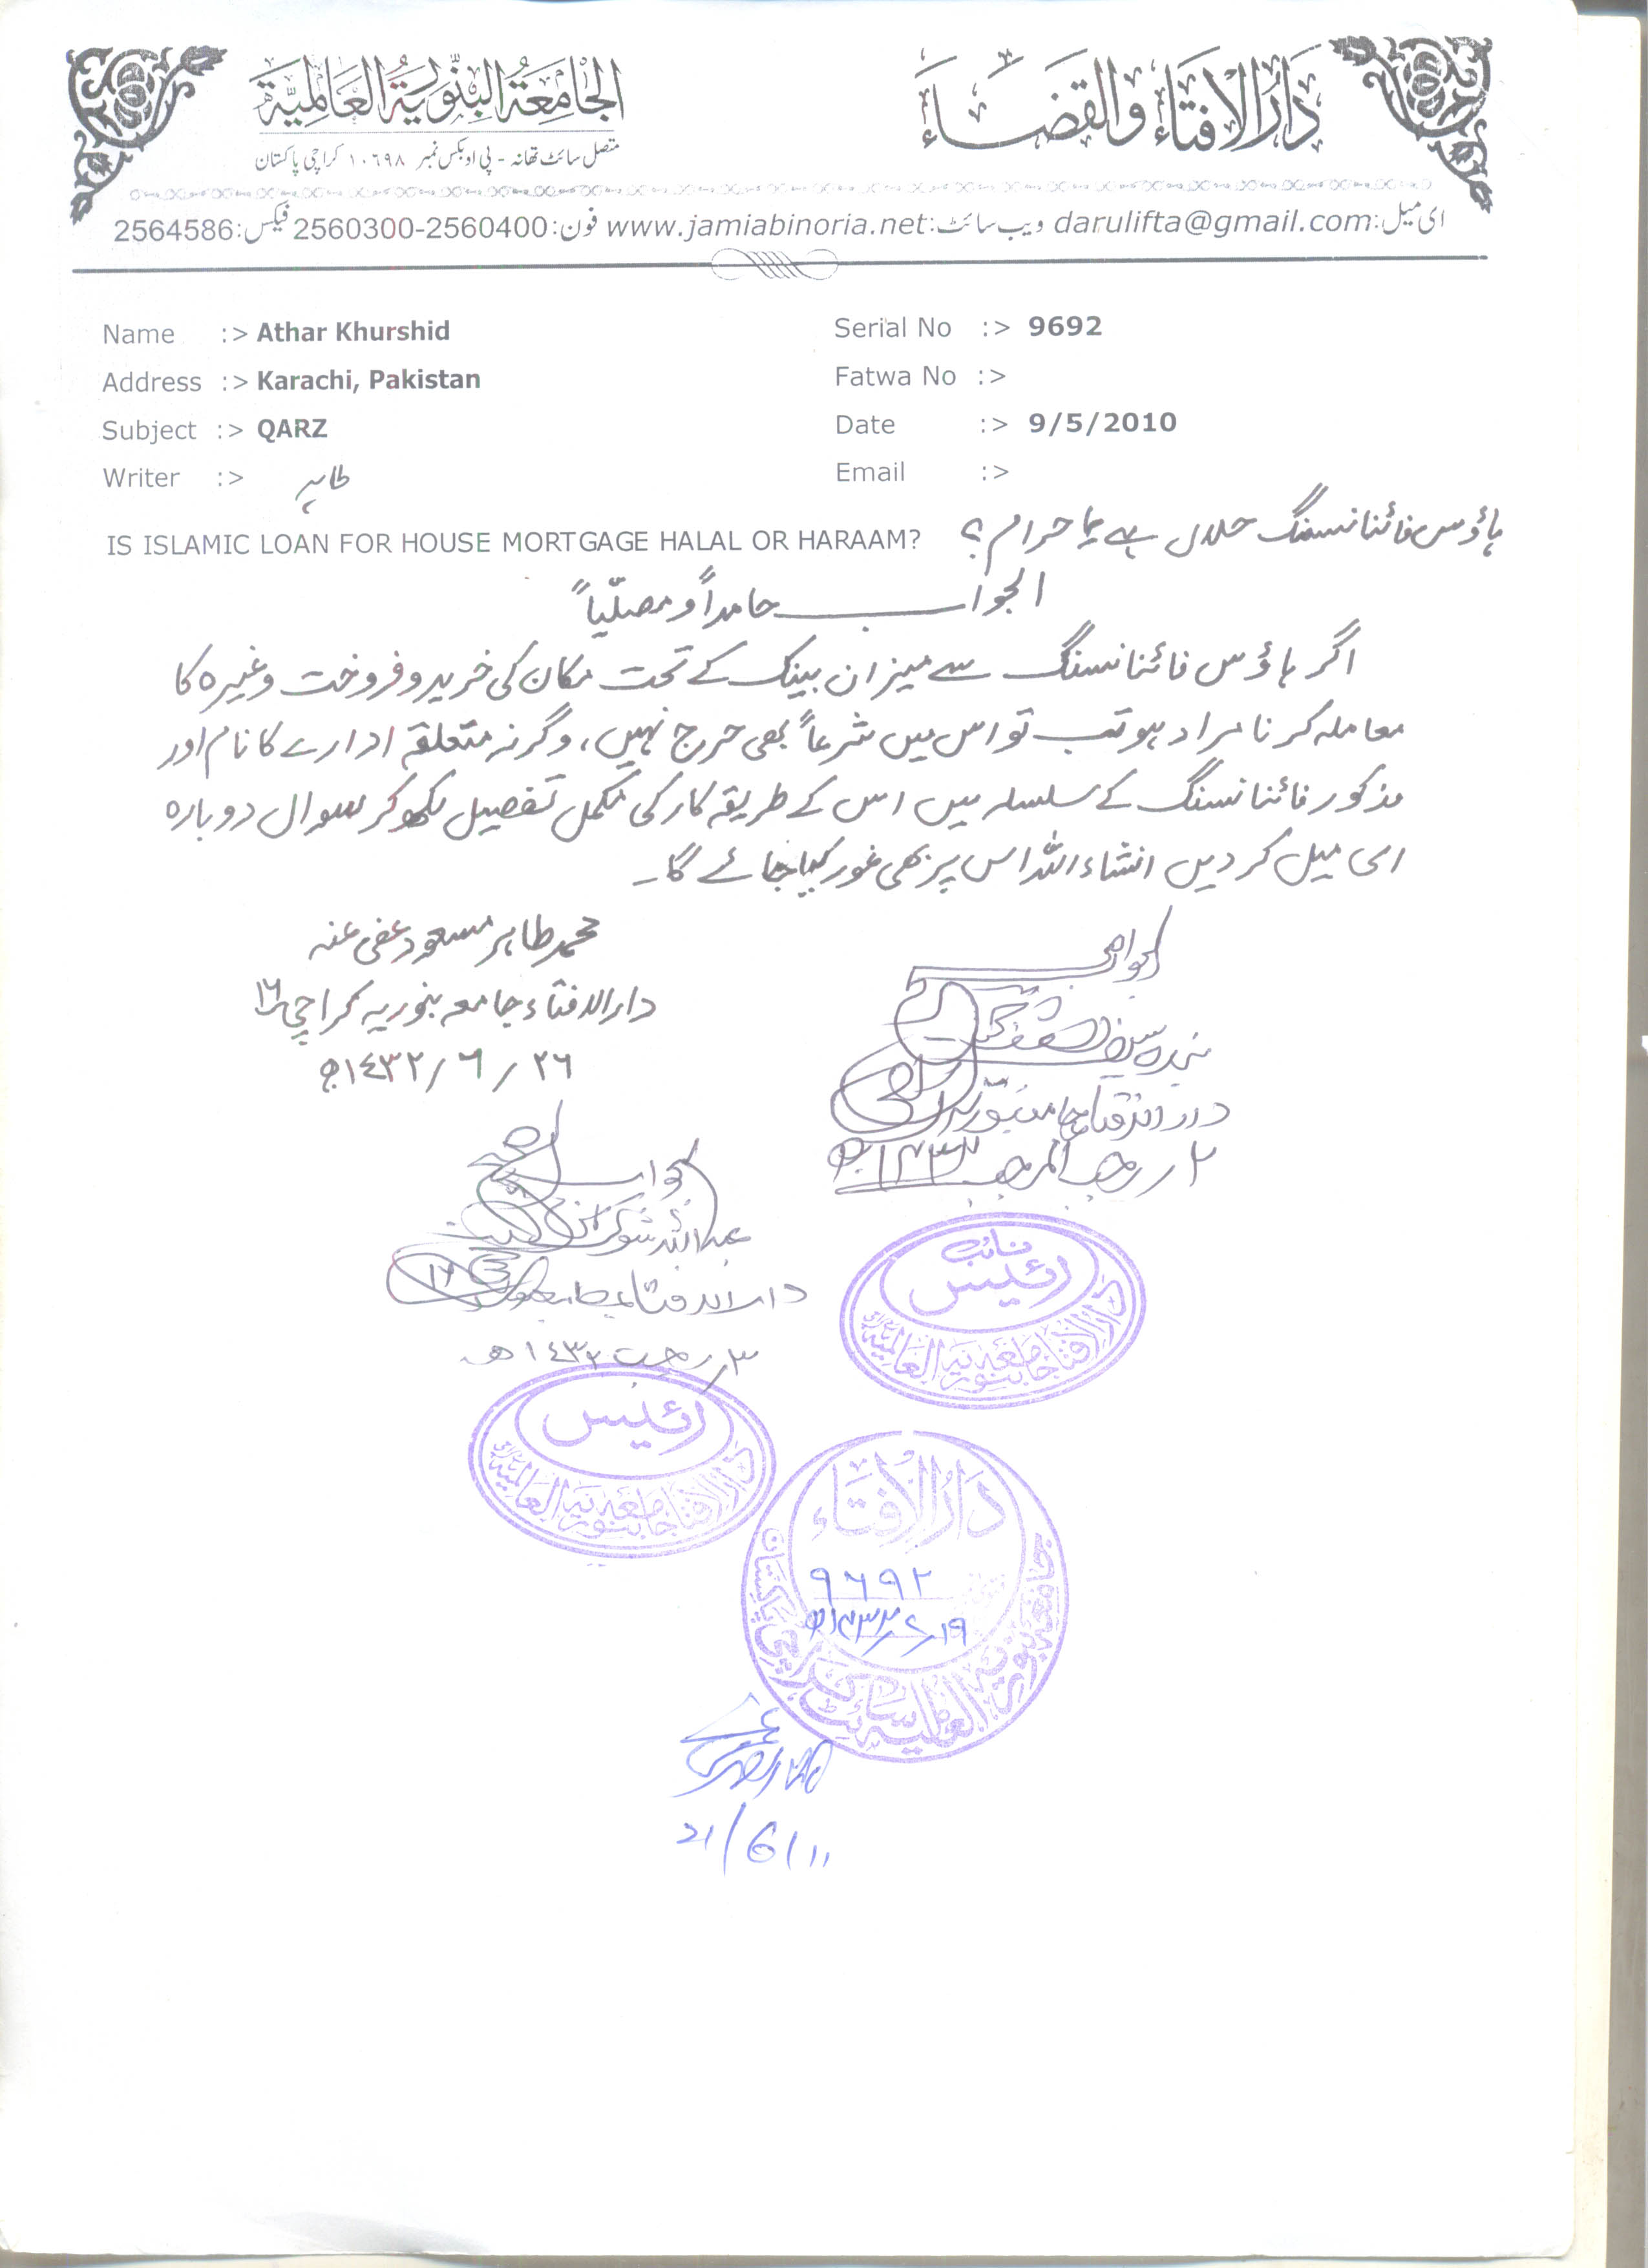 دَارُالْافتَاء وَالقَضَاء
الجَامِعَةُ البِنّورِيَّةُ العَالَمِيَّة
متصل سائٹ تھانہ - پی او بکس نمبر ١٠٦٩٨ کراچی پاکستان
ای میل:darulifta@gmail.com ویب سائٹ:www.jamiabinoria.net فون:2560300-2560400 فیکس:2564586
Name :> Athar Khurshid
Serial No :> 9692
Address :> Karachi, Pakistan
Fatwa No :>
Subject :> QARZ
Date :> 9/5/2010
Writer :> طاہر
Email :>
IS ISLAMIC LOAN FOR HOUSE MORTGAGE HALAL OR HARAAM? ہاؤس فائنانسنگ حلال ہے یا حرام؟
الجواب حامداً و مصلّیاً
اگر ہاؤس فائنانسنگ سے میزان بینک کے تحت مکان کی خرید و فروخت وغیرہ کا
معاملہ کرنا مراد ہو تب تو اس میں شرعاً بھی حرج نہیں، وگرنہ متعلقہ ادارے کا نام اور
مذکور فائنانسنگ کے سلسلہ میں اس کے طریقہ کار کی مکمل تفصیل لکھ کر سوال دوبارہ
ای میل کر دیں انشاءاللہ اس پر بھی غور کیا جائے گا۔
محمد طاہر مسعود عفی عنہ
دارالافتاء جامعہ بنوریہ کراچی ١٦
٢٦ / ٦ / ١٤٣٢ھ
الجواب
دارالافتاء جامعہ بنوریہ
٢ رجب المرجب ١٤٣٢ھ
الجواب صحیح
دارالافتاء
٣ رجب ١٤٣٢ھ
نائب
رئیس
دارالافتاء جامعہ بنوریہ العالمیہ
رئیس
دارالافتاء جامعہ بنوریہ العالمیہ
دَارُالْافتَاء
٩٦٩٢
جامعہ بنوریہ العالمیہ سائٹ کراچی پاکستان
21/6/11